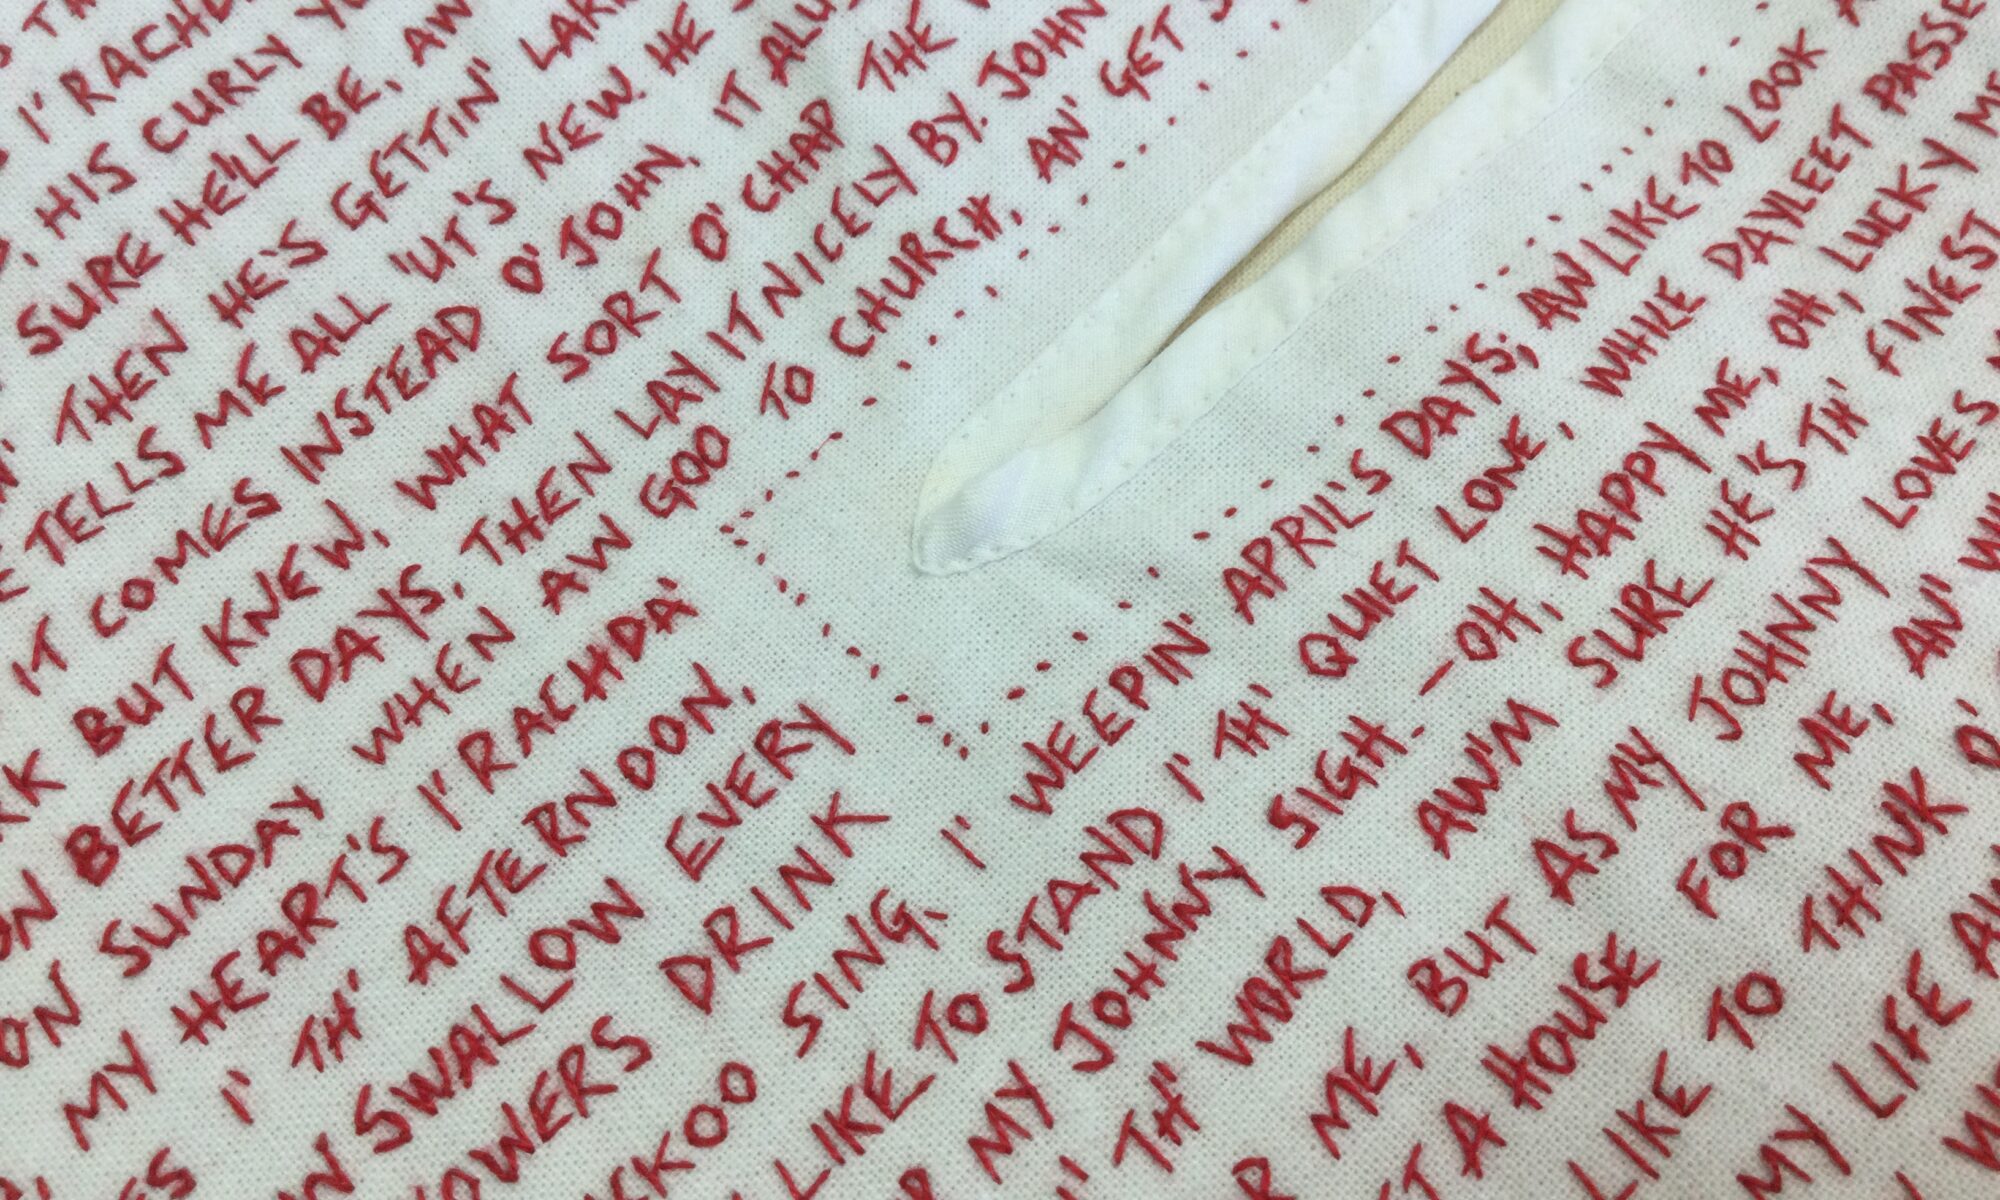 I' RACHDA
HIS CURLY
SURE HE'LL BE, AW
THEN HE'S GETTIN'
TELLS ME ALL 'UT'S NEW. HE
IT COMES INSTEAD O' JOHN. IT
BUT KNEW, WHAT SORT O' CHAP THE
BETTER DAYS, THEN LAY IT NICELY BY. JOHN
ON SUNDAY WHEN AW GOO TO CHURCH, AN' GET
MY HEART'S I' RACHDA'
I' TH' AFTERNOON,
SWALLOW EVERY
DRINK
SING, I' WEEPIN' APRIL'S DAYS; AW LIKE TO LOOK
LIKE TO STAND I' TH' QUIET LONE, WHILE DAYLEET
MY JOHNNY SIGH.—OH, HAPPY ME, OH, LUCKY
I' TH' WORLD, AW'M SURE HE'S TH' FINEST
ME, BUT AS MY JOHNNY LOVES
A HOUSE FOR ME, AN'
LIKE TO THINK O'
MY LIFE